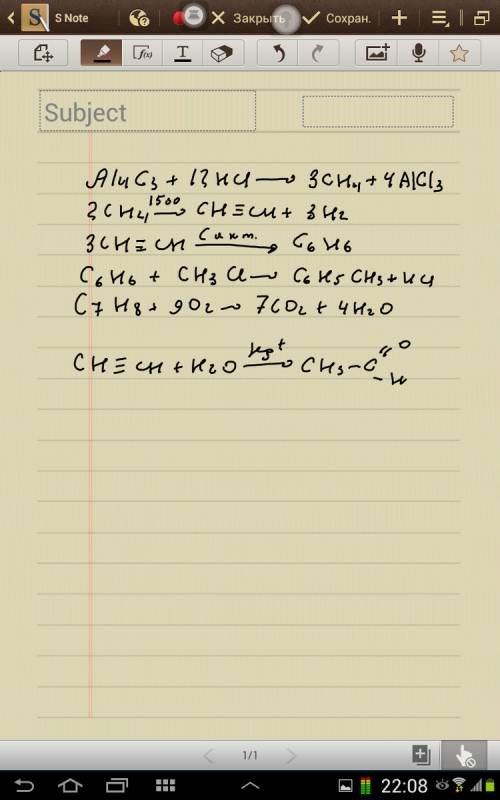 S Note
Закрыть
Сохран.
f(x)
T
Subject
Al4C3 + 12HCl → 3CH4 + 4AlCl3
2CH4 1500 → CH≡CH + 3H2
3CH≡CH → C6H6
C6H6 + CH3Cl → C6H5CH3 + HCl
C7H8 + 9O2 → 7CO2 + 4H2O
CH≡CH + H2O Hg+ → CH3-C =O -H
1/1
22:08